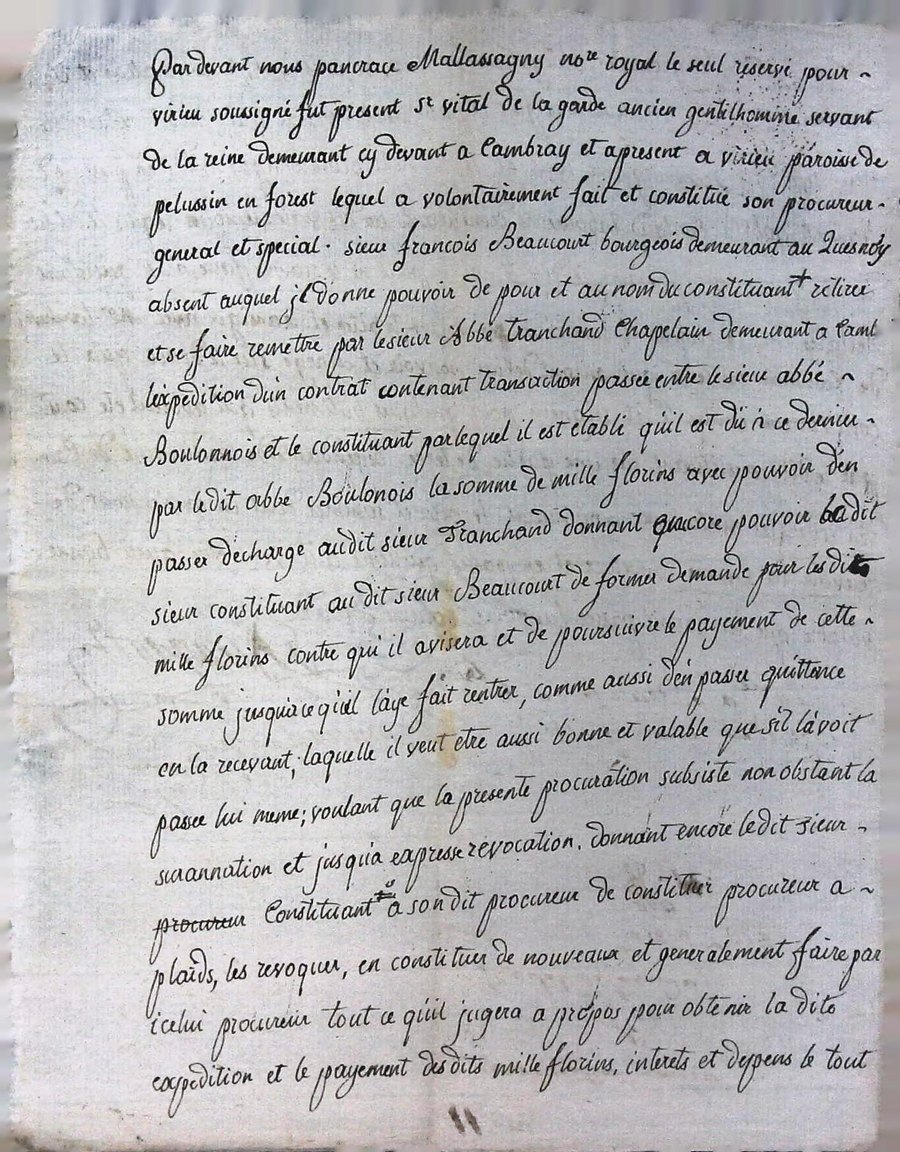 Par devant nous pancrace Mallassagny no.re royal le seul reservé pour ~
virieu soussigné fut present Sr vital de la garde ancien gentilhomme servant
de la reine demeurant cy devant a Cambray et apresent a virieu paroisse de
pelussin en forest lequel a volontairement fait et constitué son procureur -
general et special. sieur francois Beaucourt bourgeois demeurant au Quesnoy
absent auquel jl donne pouvoir de pour et au nom du constituant + retirer
et se faire remettre par le sieur Abbé tranchand Chapelain demeurant a Camb
l'éxpedition d'un contrat contenant transaction passee entre le sieur abbé ~
Boulonnois et le constituant par lequel il est etabli qu'il est dû a ce dernier -
par le dit abbé Boulonois la somme de mille florins avec pouvoir d'en
passer decharge audit sieur Tranchand donnant encore pouvoir ledit
sieur constituant au dit sieur Beaucourt de former demande pour les dits
mille florins contre qui il avisera et de poursuivre le payement de cette ~
somme jusqu'a ce qu'il l'aye fait rentrer, comme aussi d'en passer quittence
en la recevant; laquelle il veut etre aussi bonne et valable que s'il l'avoit
passee lui meme; voulant que la presente procuration subsiste non obstant la
surannation et jusqu'a expresse revocation. donnant encore le dit sieur -
procureur Constituant a son dit procureur de constituer procureur a ~
plaids, les revoquer, en constituer de nouveaux et generalement faire par
icelui procureur tout ce qu'il jugera a propos pour obtenir la dite
expedition et le payement des dits mille florins, interets et depens le tout